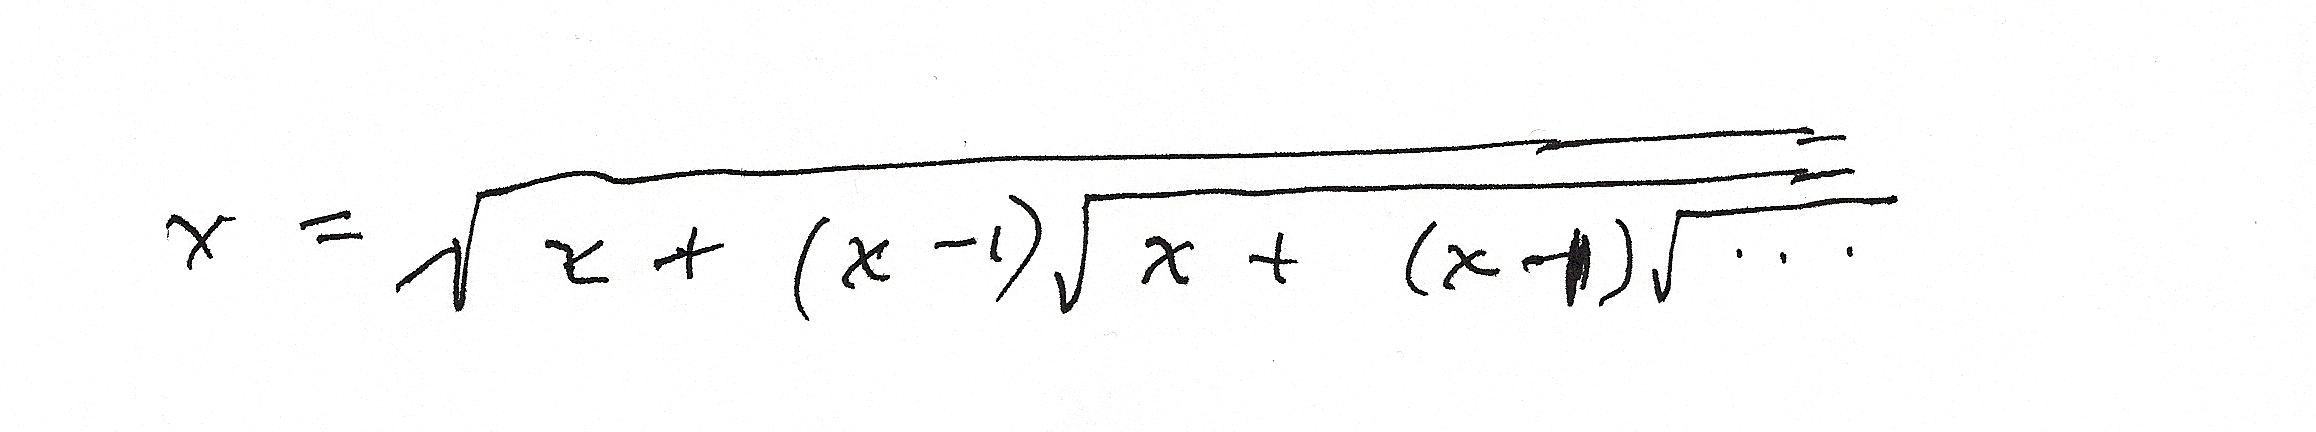 x = √(x + (x-1)√(x + (x-1)√...